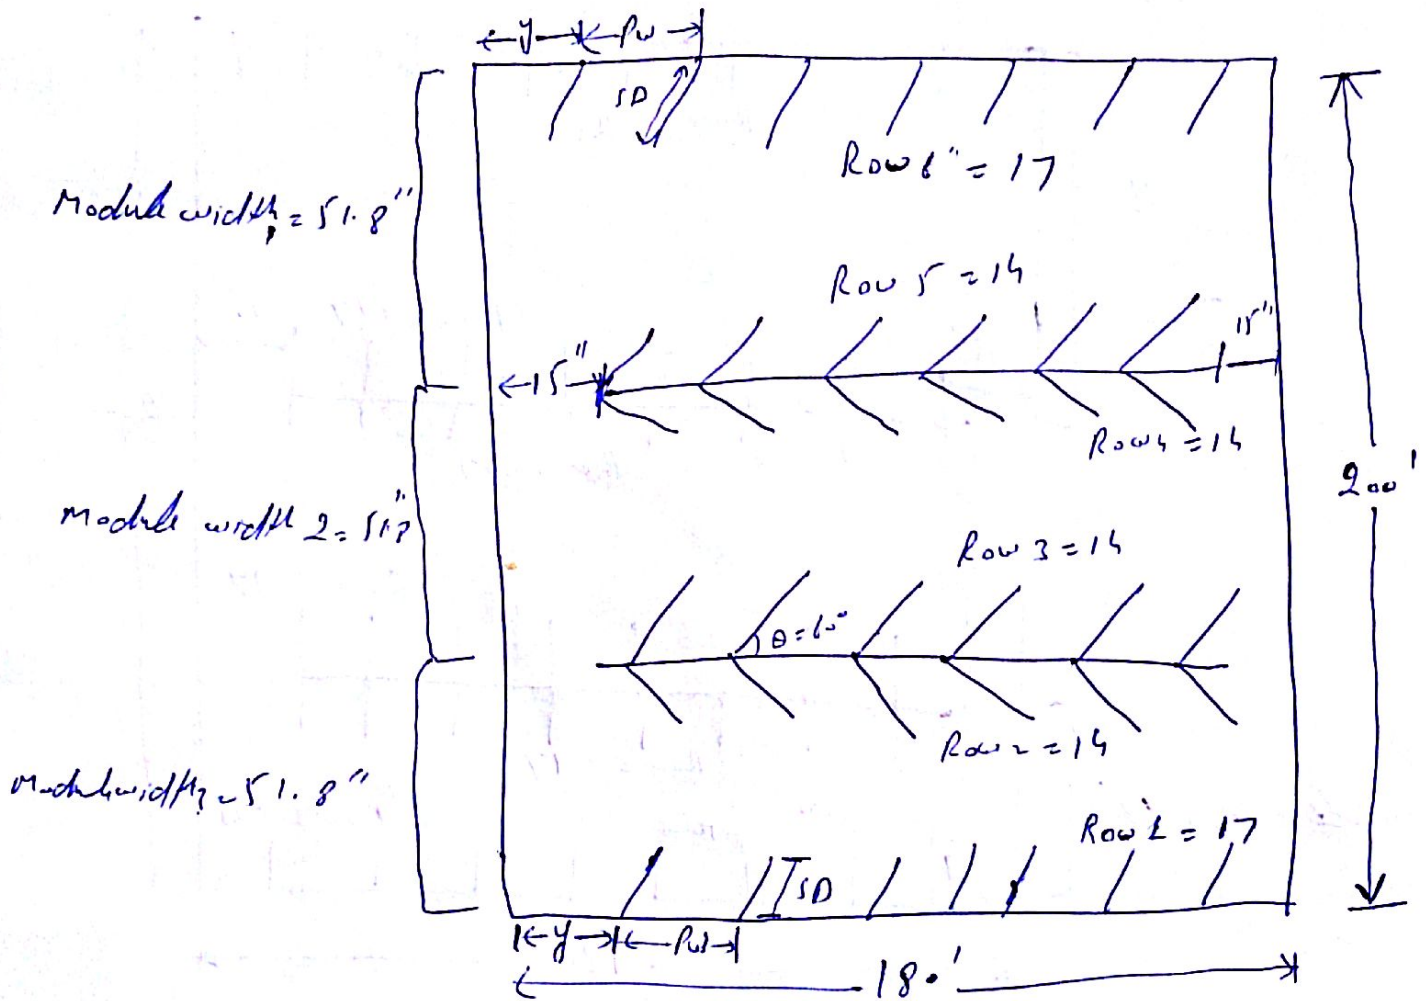 y Pw
SD
Row 6" = 17
Module width, = 51.8"
Row 5 = 14
15"
15"
Row 4 = 14
200'
Module width 2 = 51.8"
Row 3 = 14
θ = 60°
Row 2 = 14
Module width3 = 51.8"
Row 1 = 17
SD
y Pw
180'